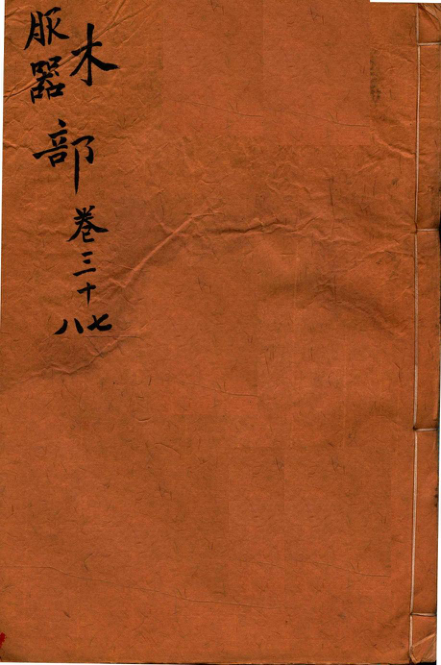 木
服器
部
卷三十七
八